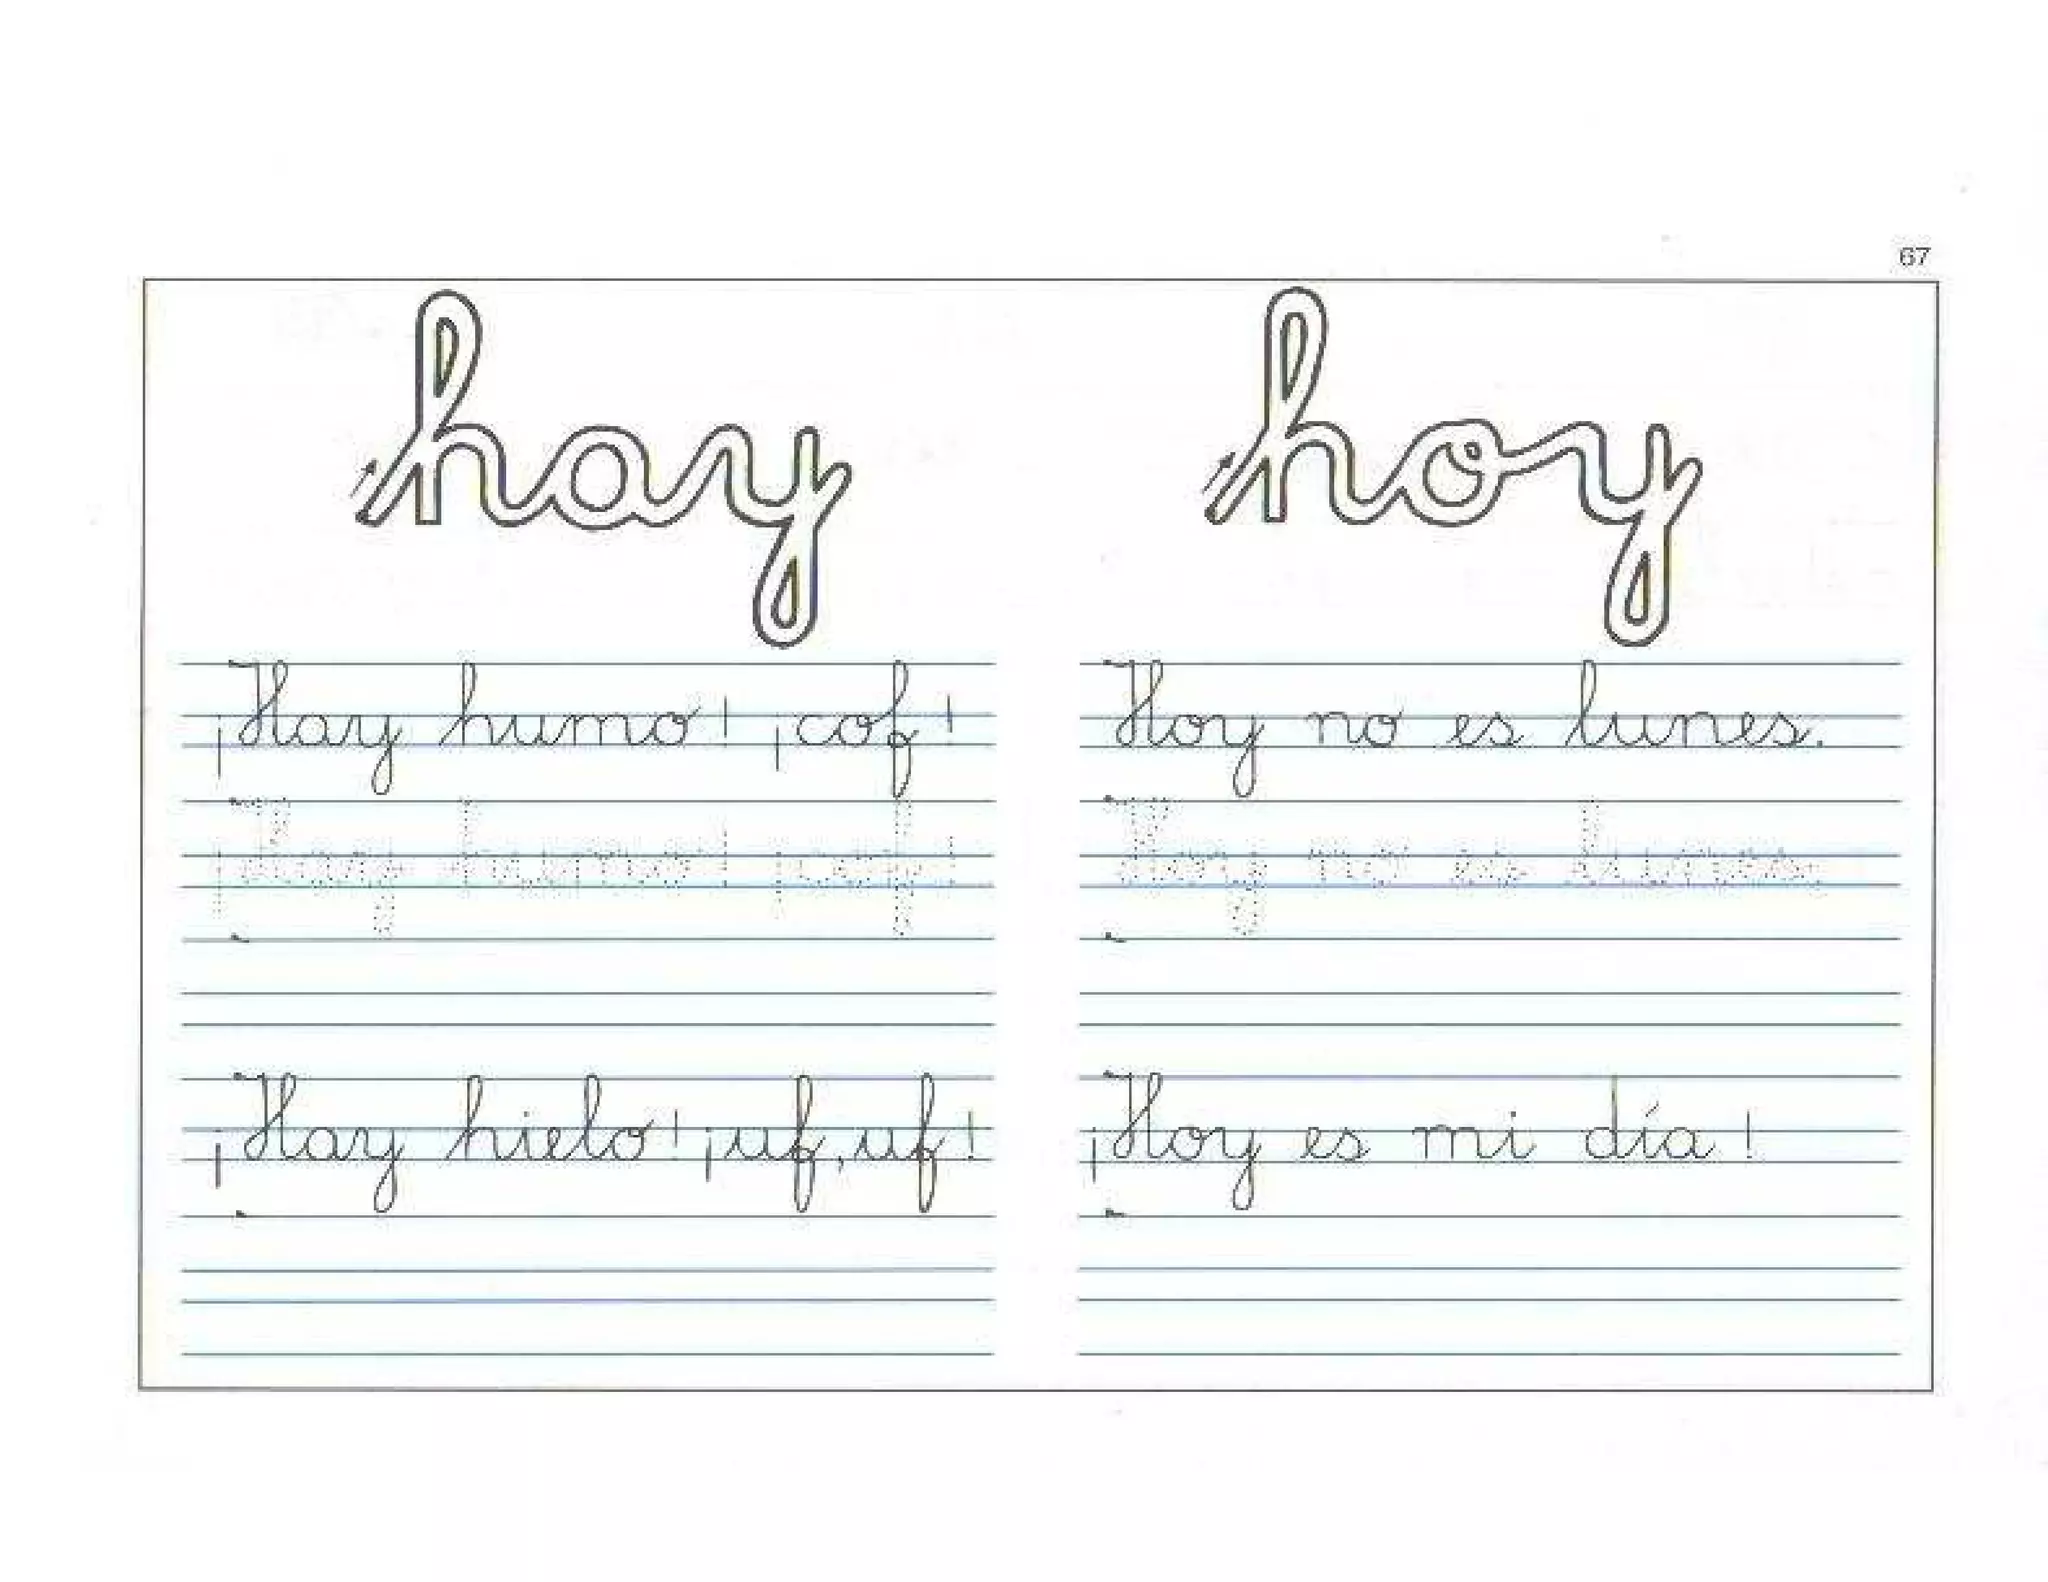 67
hay
hoy
¡Hay humo! ¡cof!
¡Hay humo! ¡cof!
¡Hay hielo! ¡uf, uf!
Hoy no es lunes.
Hoy no es lunes.
¡Hoy es mi día!